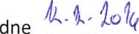 dne 12.2.2014